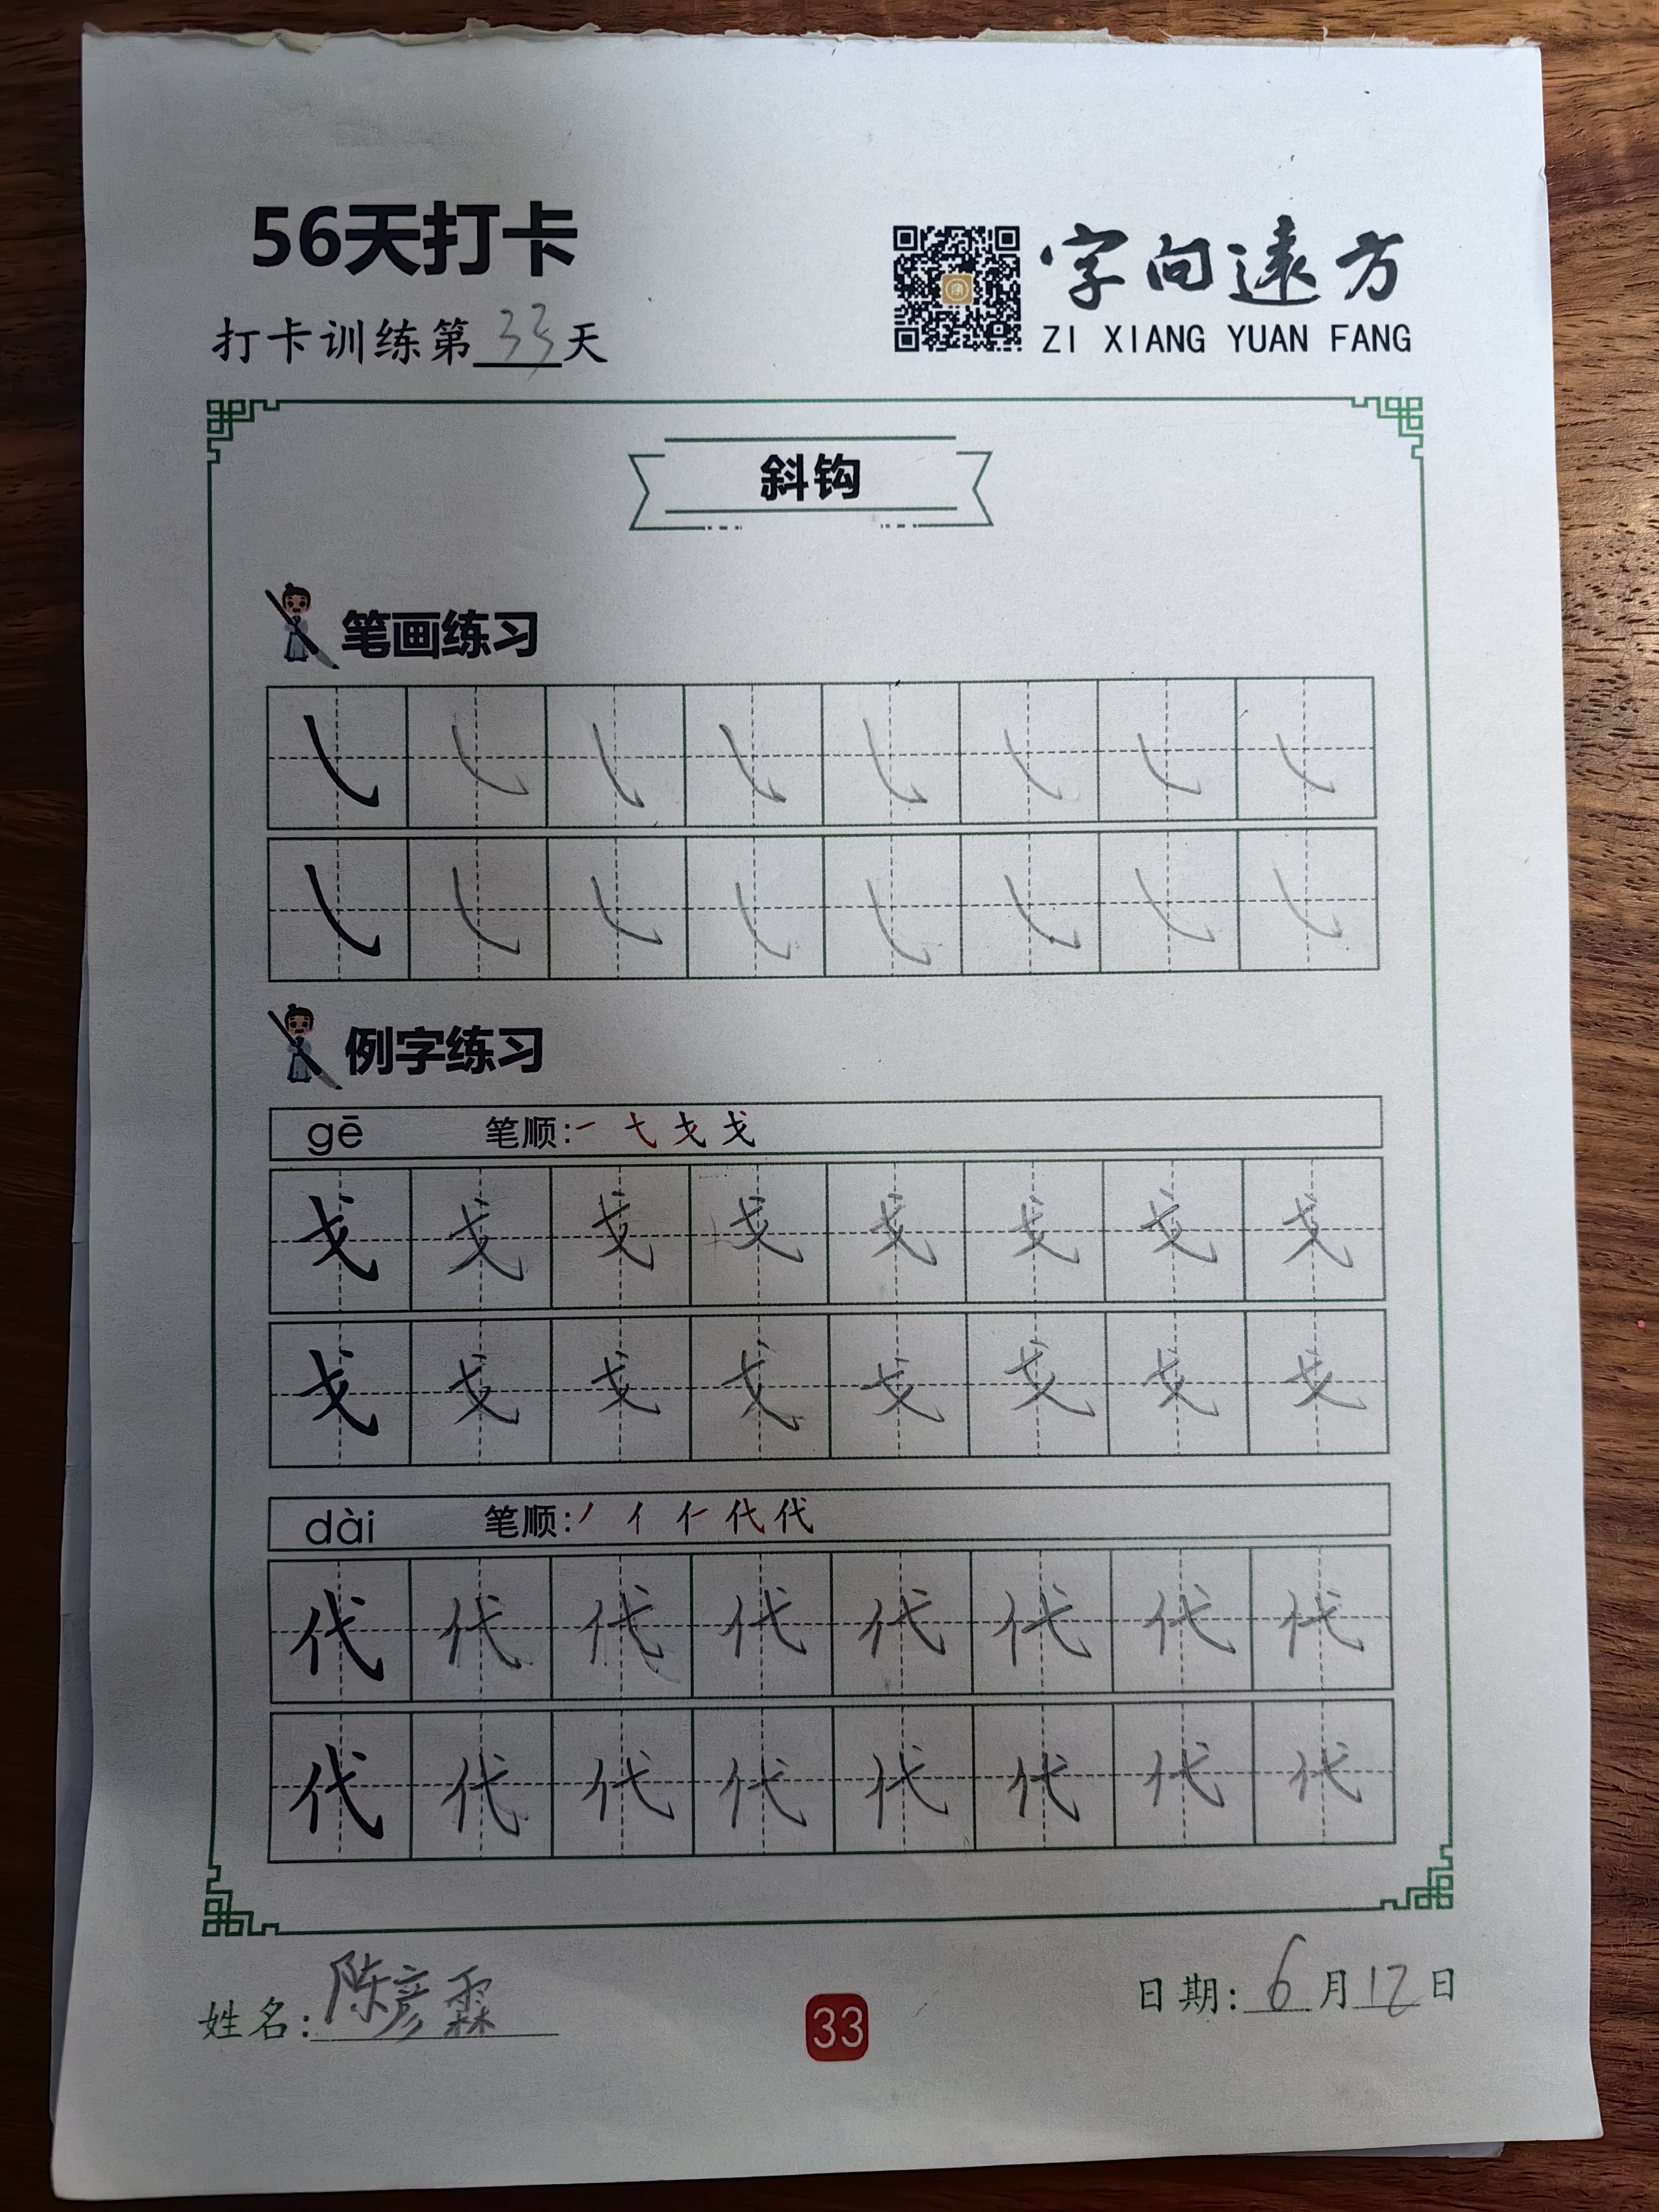 56天打卡
打卡训练第33天
字向遠方
ZI XIANG YUAN FANG
斜钩
笔画练习
㇂ ㇂ ㇂ ㇂ ㇂ ㇂ ㇂ ㇂
㇂ ㇂ ㇂ ㇂ ㇂ ㇂ ㇂ ㇂
例字练习
gē 笔顺:
戈 戈 戈 戈 戈 戈 戈 戈
戈 戈 戈 戈 戈 戈 戈 戈
dài 笔顺:
代 代 代 代 代 代 代 代
代 代 代 代 代 代 代 代
姓名:陈彦霖
33
日期:6月12日